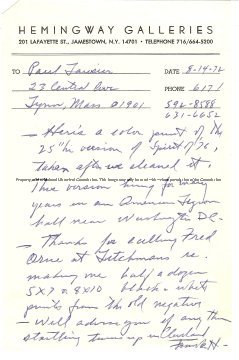 HEMINGWAY GALLERIES
201 LAFAYETTE ST., JAMESTOWN, N.Y. 14701 • TELEPHONE 716/664-5200
TO Paul DATE 8-14-72
23 Central Ave PHONE 617/
Lynn, Mass 01901 592-8588
631-6652
— Here's a color print of the
25" version of Spirit of 76,
taken after we cleaned it.
This version hung for many
years in an American Legion
hall near Washington DC.
— Thanks for calling Fred
Orne at Fitchmans re.
making me half a dozen
5x7 or 8x10 black & white
prints from the old negative
— Will advise you if any thing
startling turns up in Cleveland